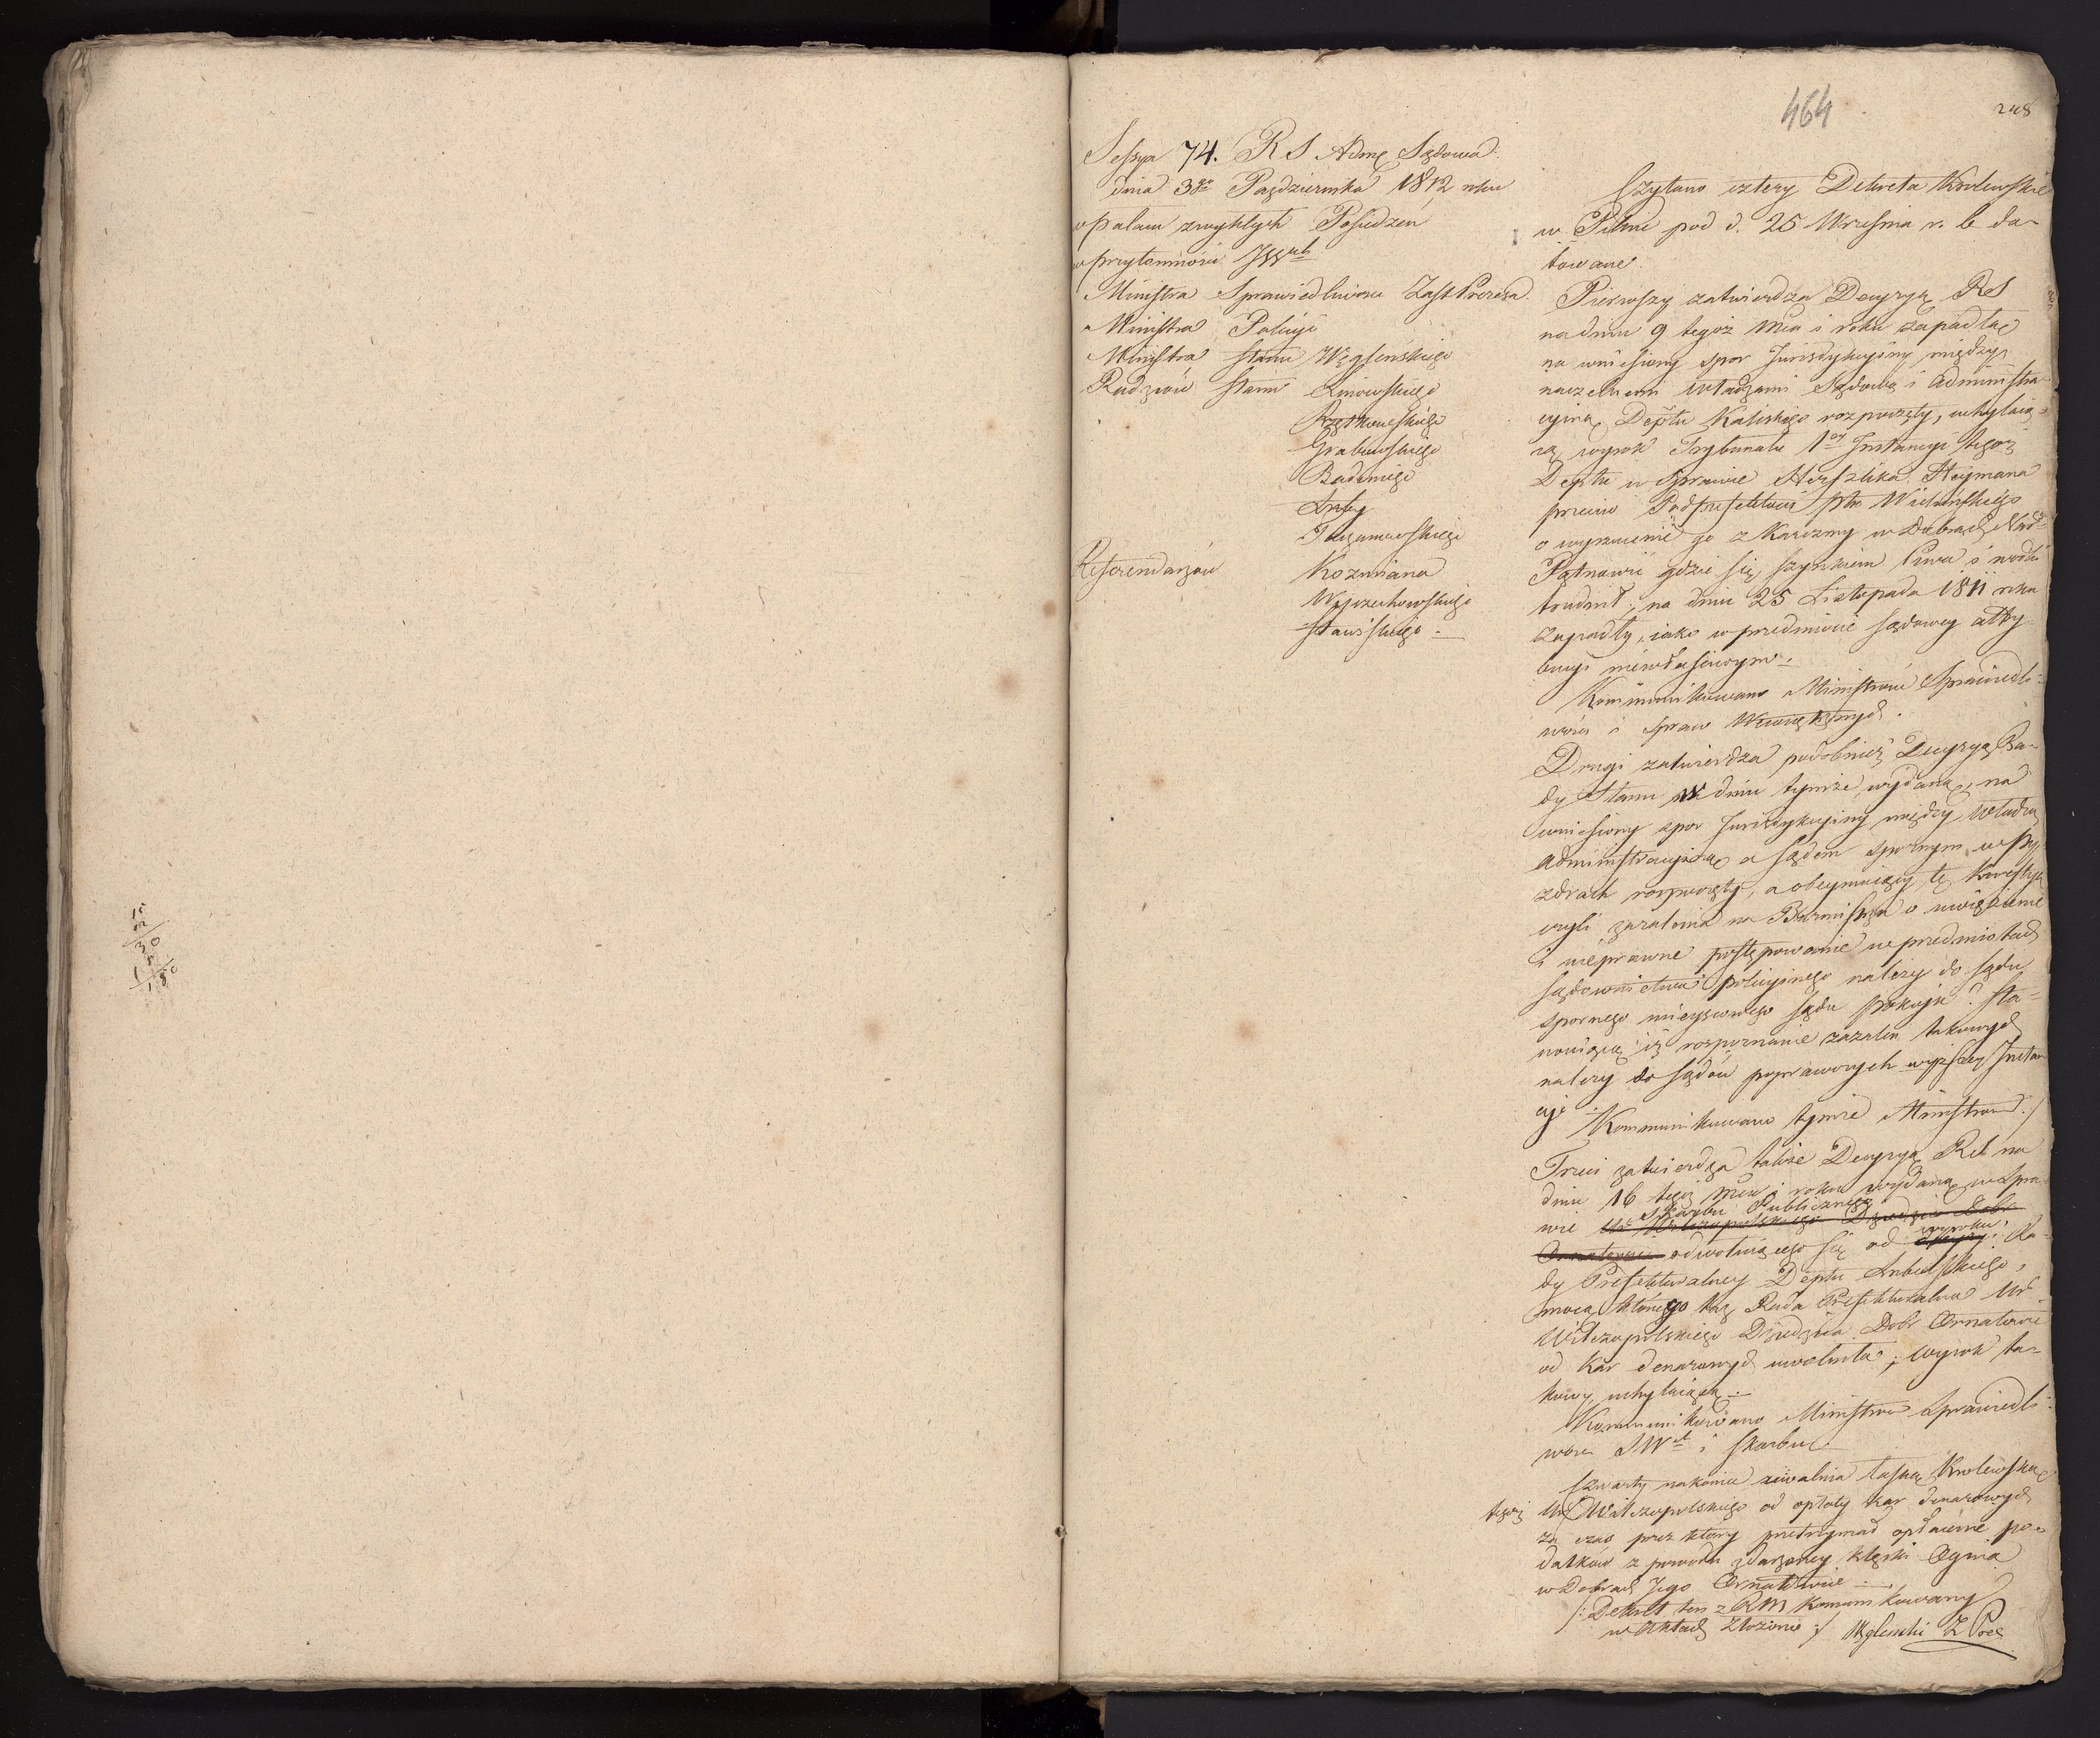 15
2
30
5
1 80
464
248
Sessya 74. RS Admę Sądowa
dnia 3go Października 1812 roku
w Pałacu zwykłych Posiedzeń
w przytomności JWWch
Ministra Sprawiedliwości Zast Prezesa
Ministra Policyi
Ministra Stanu Węgleńskiego
Radzców Stanu Linowskiego
Grabowskiego
Badeniego
Lubę
Referendarzów Kozmiana
Woyciechowskiego
Czytano cztery Dekreta Krolewskie
w Pilnic pod d. 25 Wrzesnia r. b. da-
towane.
Pierwszy zatwierdza Decyzyę RS
na dniu 9 tegoż Mca i roku zapadłą
na wniesiony spor Jurisdykcyiny między
naczelnemi władzami Sądową i Administra-
cyiną Deptu Kaliskiego rozpoczęty, uchylaią-
cą wyrok Trybunału 1ey Instancyi tegoż
Deptu w sprawie Herszlika Heymana
przeciw Podprefektowi Ptu Wieluńskiego
o wyrzucenie go z Karczmy w Dobrach Nard
Pątnowie gdzie się szynkiem Piwa i wodki
trudnił, na dniu 25 Listopada 1811 roku
zapadły, iako w przedmiocie sądowey atty-
bucyi niewłaściwym.
Kommunikowano Ministrowi Sprawiedli-
wości i Spraw Wewnętrznych.
Drugi zatwierdza podobnież Decyzyą Ra-
dy Stanu w dniu tymże wydaną, na
wniesiony spor Jurisdykcyiny między władzą
Administracyiną a Sądem spornym w Py-
zdrach rozpoczęty, a obeymuiący tę kwestyą
czyli zażalenia na Burmistrza o uwięzienie
i nieprawne postępowanie w przedmiotach
sądownictwa policyinego należy do sądu
spornego mieyscowego sądu pokoju? Sta-
nowiącą iż rospoznanie zażaleń takowych
należy do sądów poprawczych wyższey Instan-
cyi. Kommunikowano tymże Ministrom./
Trzeci zatwierdza także Decyzyą RS na
dniu 16 tegoż Mca i roku wydaną w spra-
wie Skarbu Publicznego
Ur Wilczopolskiego Dziedzica Dobr
odwołuiącego się od wyroku Ra-
dy Prefekturalney Deptu Lubelskiego,
mocą którego taż Rada Prefekturalna Ur
Wilczopolskiego Dziedzica Dobr Ornatowic
od kar denarowych uwolniła; wyrok ta-
kowy uchylaiącą.
Kommunikowano Ministrom Sprawiedli-
wości SWch i Skarbu.
Czwarty nakoniec uwalnia łaską Krolewską
tegoż Ur Wilczopolskiego od opłaty kar denarowych
za czas przez który przetrzymał opłacenie po-
datków z powodu zdarzoney klęski Ognia
w Dobrach Jego Ornatowice.
/: Dekret ten z RM kommunikowany
w Aktach złożono :/ Węgleński Z Prez